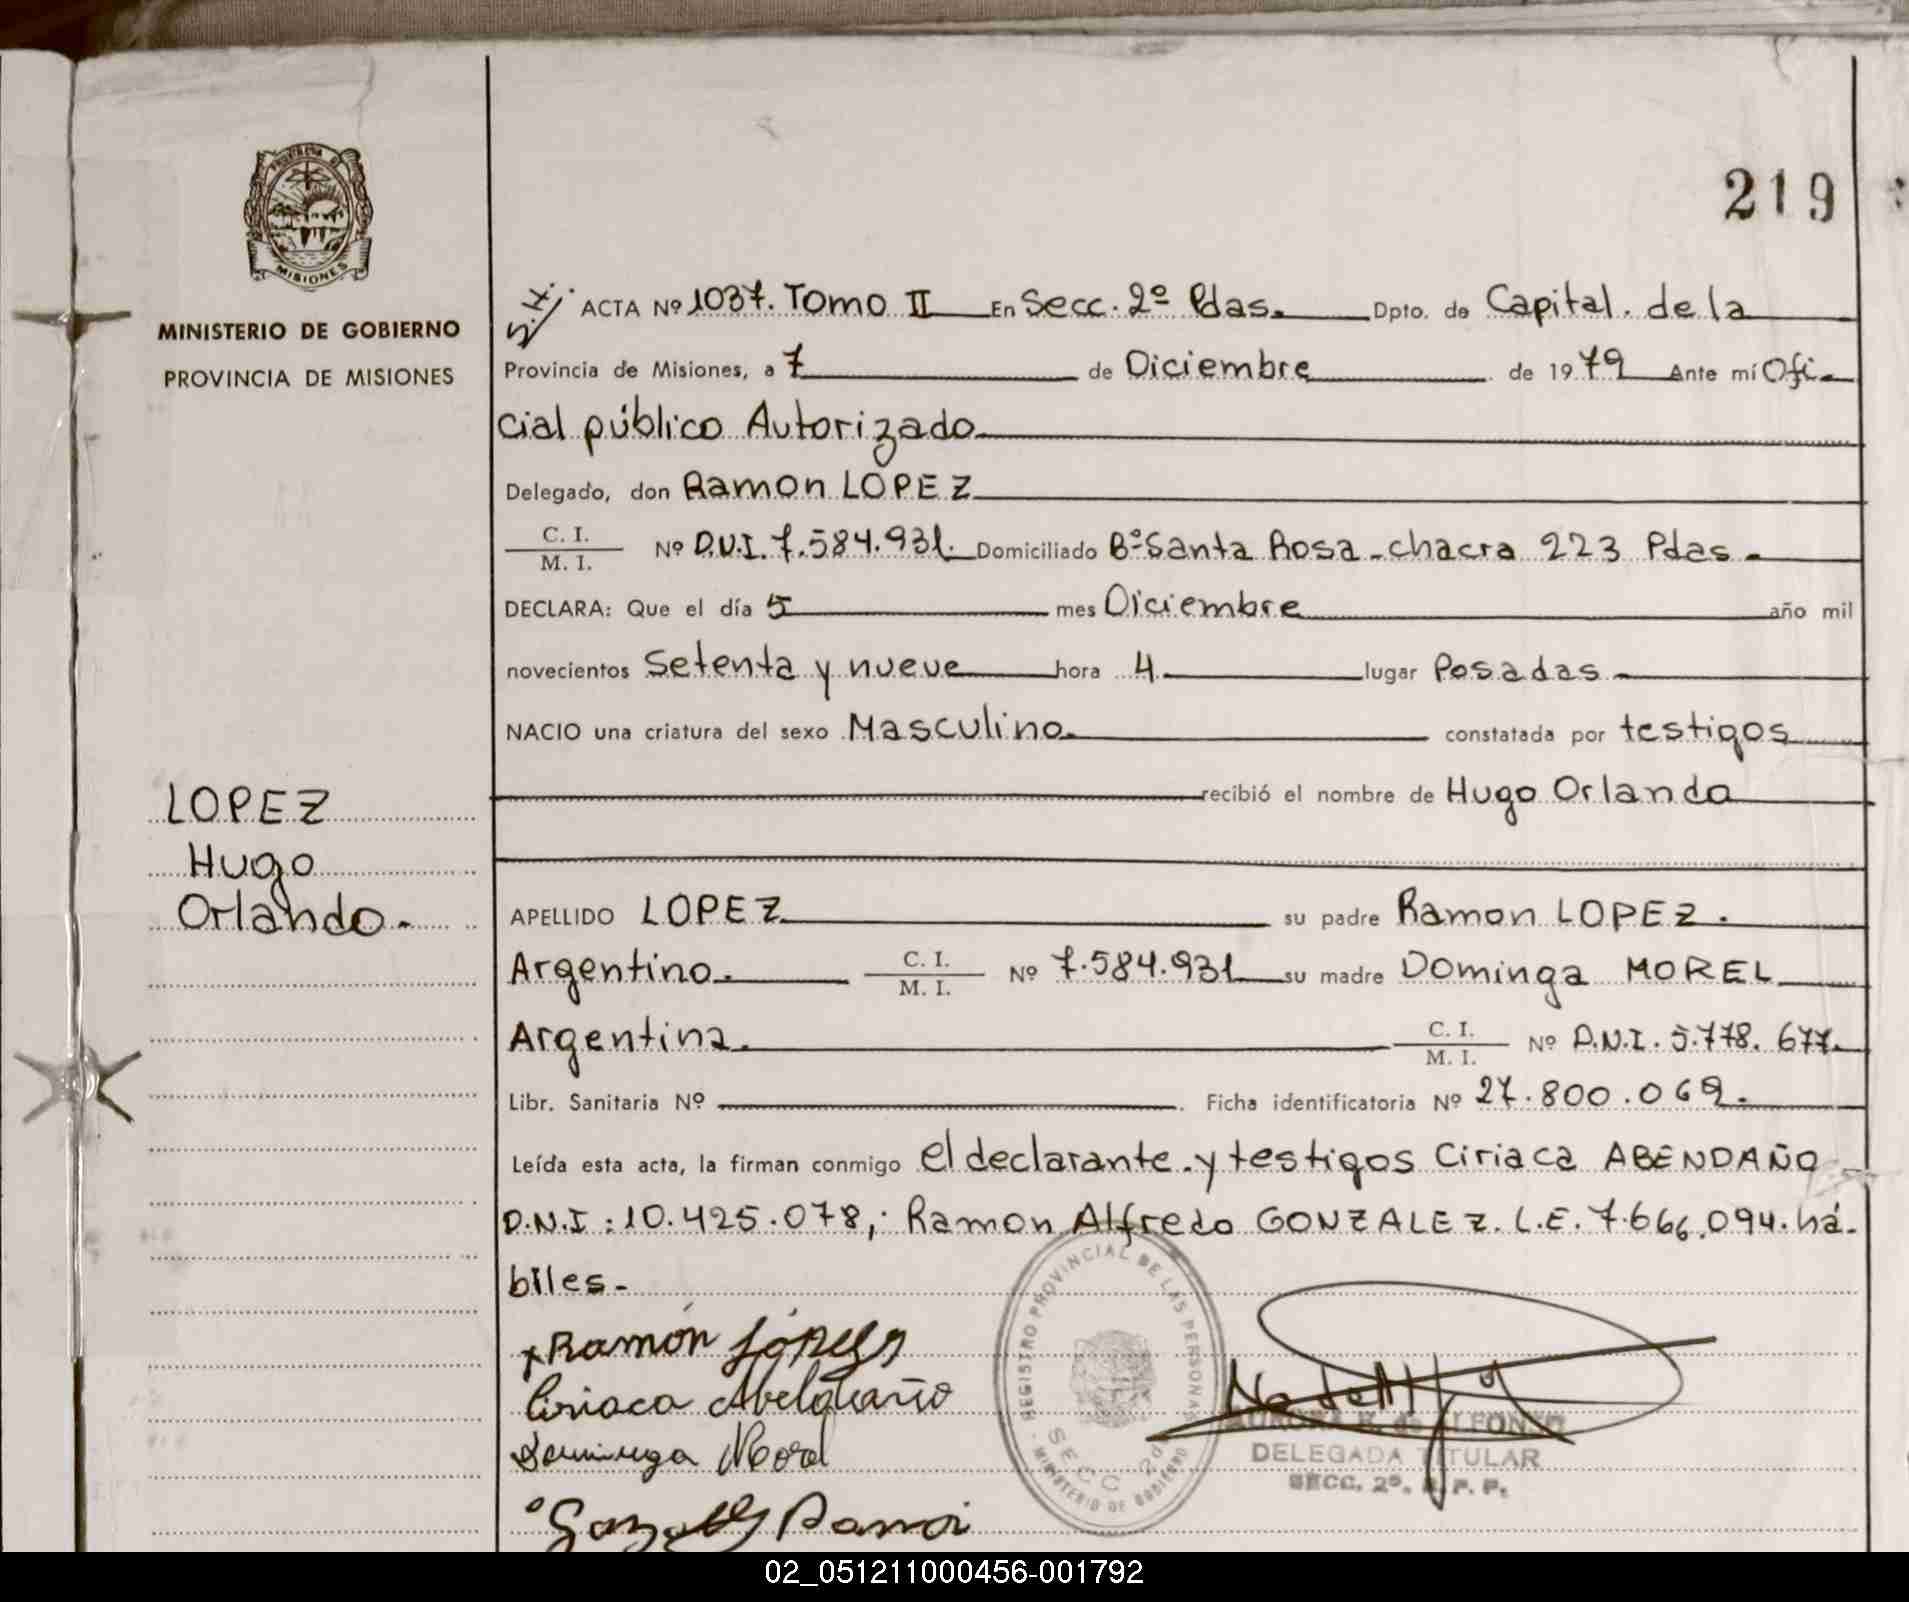 219
PROVINCIA DE
MISIONES
MINISTERIO DE GOBIERNO
PROVINCIA DE MISIONES
ACTA Nº 1037. Tomo II En Secc. 2º Pdas. Dpto. de Capital. de la
Provincia de Misiones, a 7 de Diciembre de 1979 Ante mí Ofi-
cial público Autorizado
Delegado, don Ramon LOPEZ
C. I.
M. I. Nº D.N.I. 7.584.931. Domiciliado Bº Santa Rosa - chacra 223 Pdas -
DECLARA: Que el día 5 mes Diciembre año mil
novecientos Setenta y nueve hora 4. lugar Posadas
NACIO una criatura del sexo Masculino. constatada por testigos
recibió el nombre de Hugo Orlando
LOPEZ
Hugo
Orlando.-
APELLIDO LOPEZ su padre Ramon LOPEZ.
Argentino. C. I.
M. I. Nº 7.584.931 su madre Dominga MOREL
Argentina. C. I.
M. I. Nº D.N.I. 5.778.677.
Libr. Sanitaria Nº Ficha identificatoria Nº 27.800.069.
Leída esta acta, la firman conmigo el declarante y testigos Ciriaca ABENDAÑO
D.N.I: 10.425.078,; Ramon Alfredo GONZALEZ. L.E. 7.666.094. há-
biles.-
Ramón López
Ciriaca Abendaño
Dominga Morel
Gonzalez Ramon
REGISTRO PROVINCIAL DE LAS PERSONAS
SECC. 2da
MINISTERIO DE GOBIERNO
de ALFONZO
DELEGADA TITULAR
SECC. 2º. R. P. P.
02_051211000456-001792